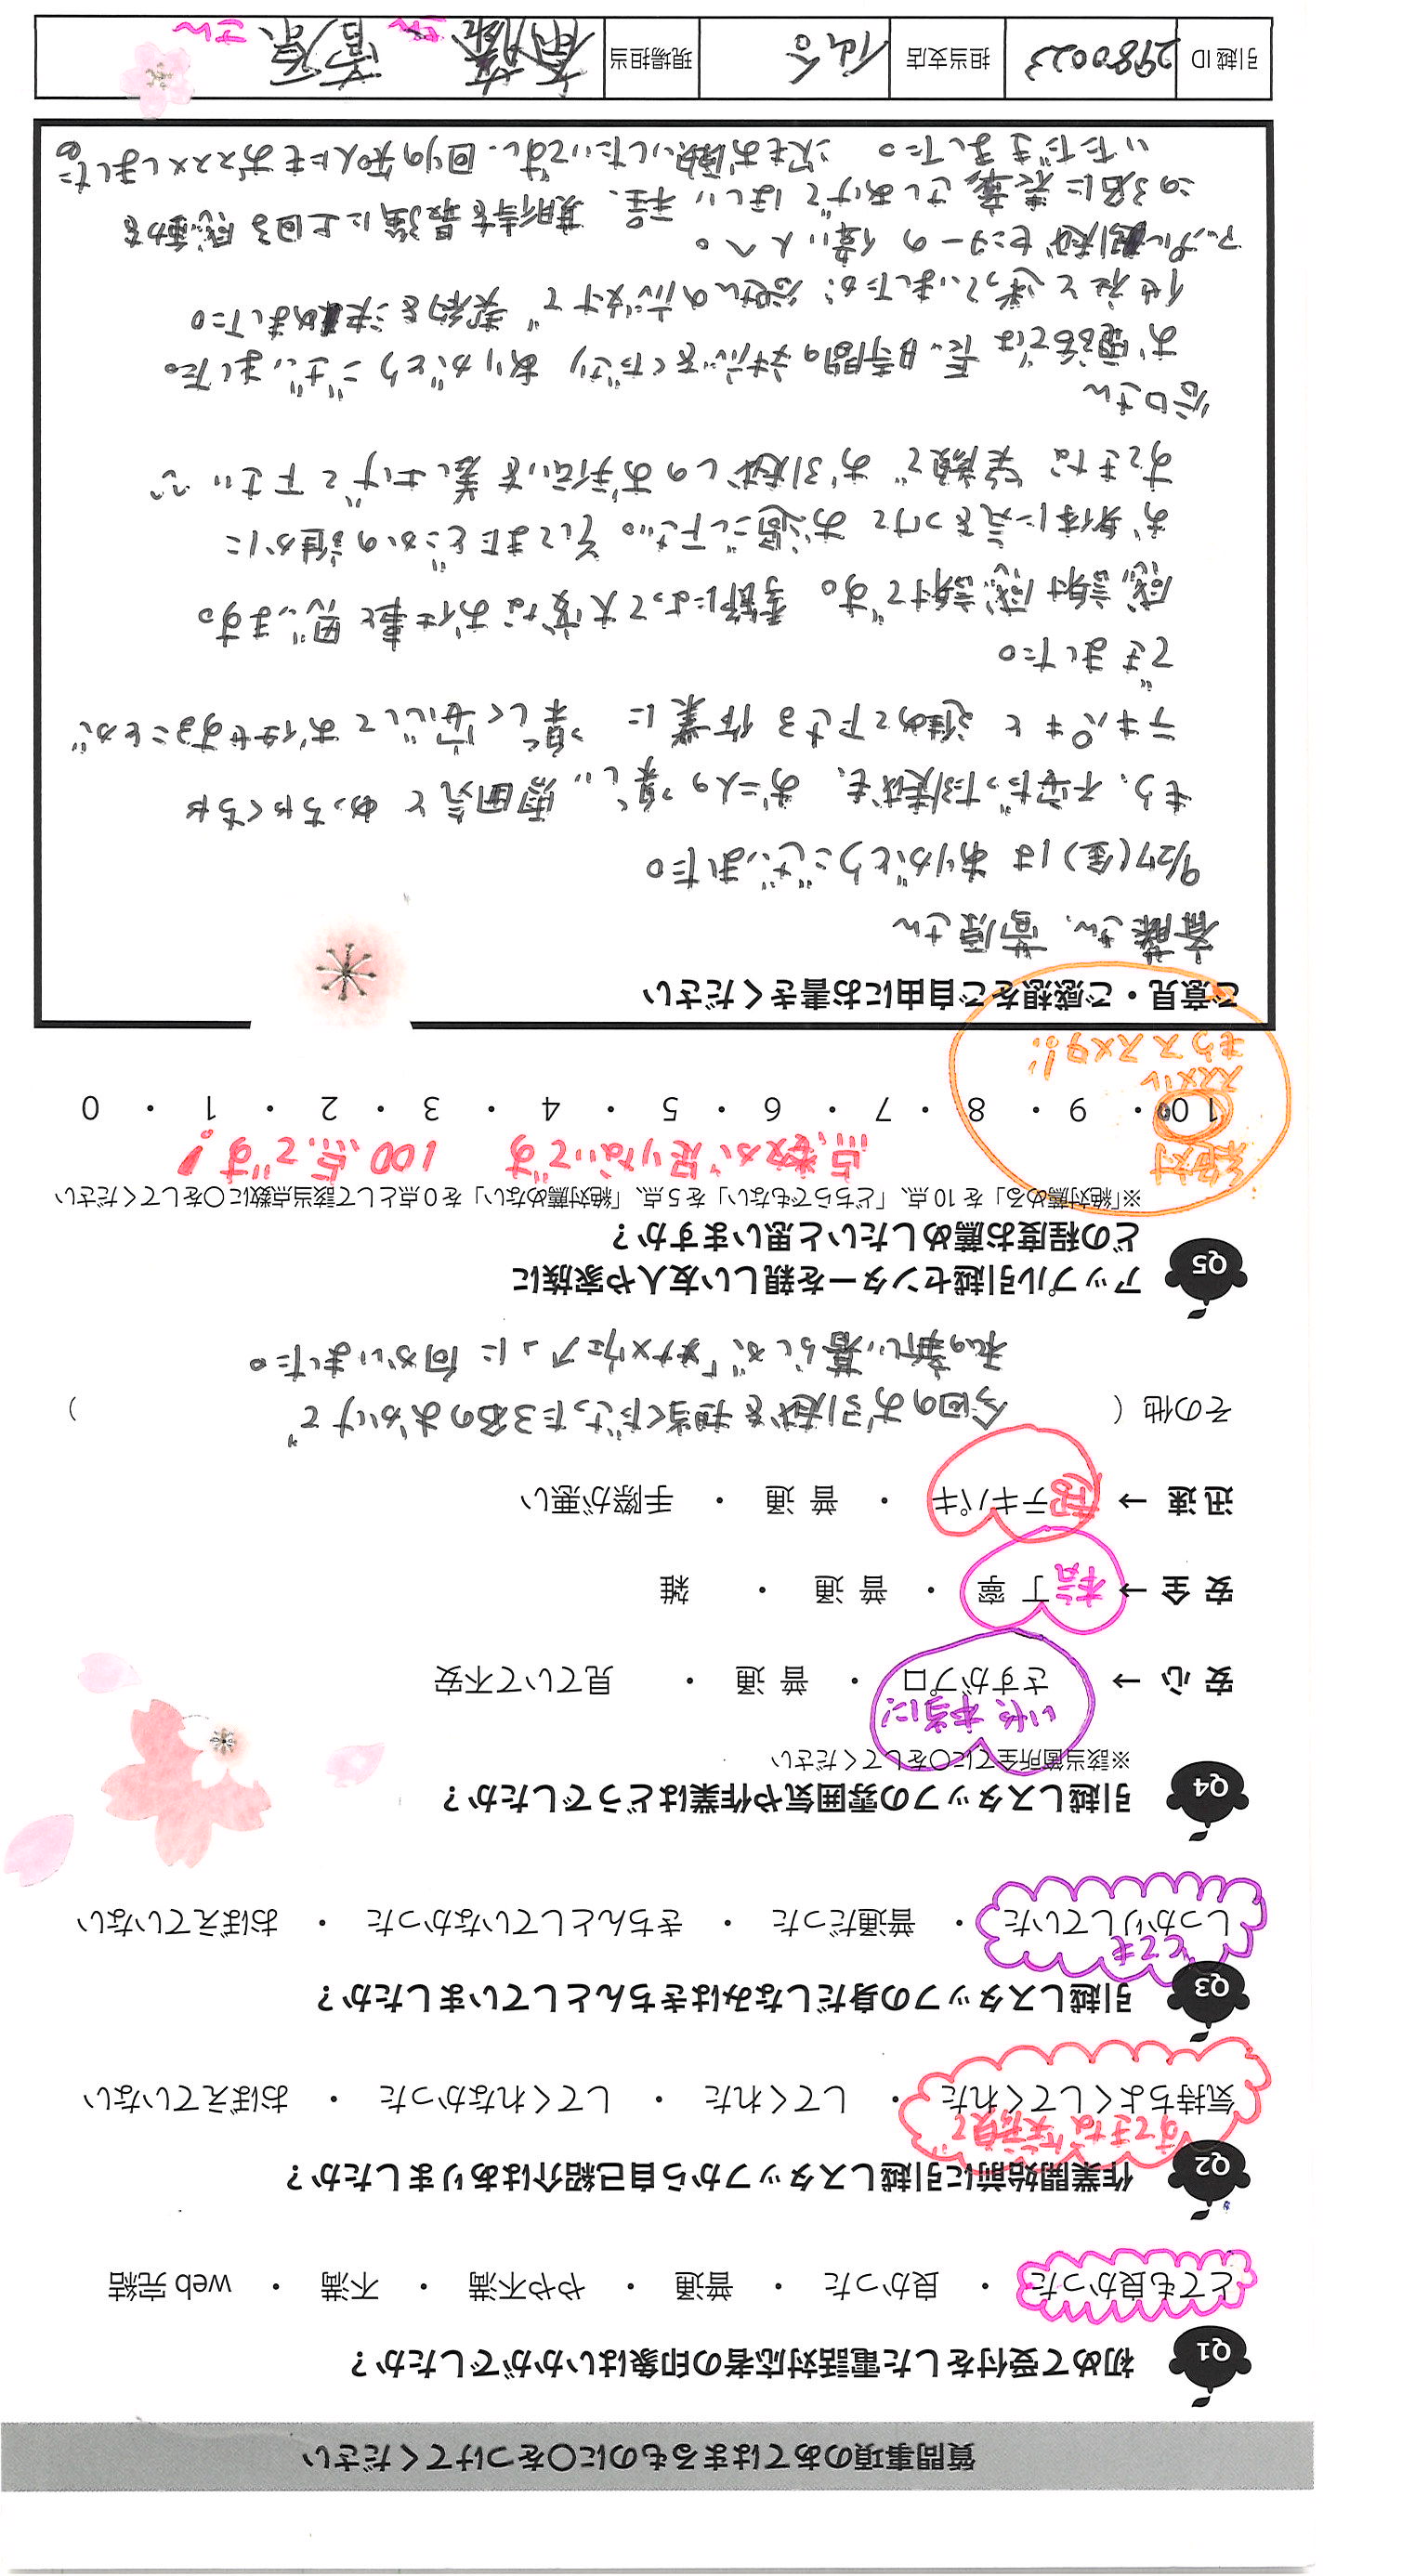 質問事項のあてはまるものに○をつけてください
Q1 初めて受付をした電話対応者の印象はいかがでしたか？
とても良かった ・ 良かった ・ 普通 ・ やや不満 ・ 不満 ・ web 完結
Q2 作業開始前に引越しスタッフから自己紹介はありましたか？
すてきな笑顔で
気持ちよくしてくれた ・ してくれた ・ してくれなかった ・ おぼえていない
Q3 引越しスタッフの身だしなみはきちんとしていましたか？
とても
しっかりしていた ・ 普通だった ・ きちんとしていなかった ・ おぼえていない
Q4 引越しスタッフの雰囲気や作業はどうでしたか？
※該当箇所全てに○をしてください
いや、本当に！
安 心 → さすがプロ ・ 普 通 ・ 見ていて不安
安 全 → 丁 寧 ・ 普 通 ・ 雑
迅 速 → 超 テキパキ ・ 普 通 ・ 手際が悪い
その他 ( 今回のお引越を担当くださった3名のおかげで )
私の新しい暮らしが
に向かいました。
Q5 アップル引越センターを親しい友人や家族に
どの程度お薦めしたいと思いますか？
※「絶対薦める」を 10 点、「どちらでもない」を 5 点、「絶対薦めない」を 0 点として該当点数に○をしてください
絶対 点数が足りないです 100点です！
10 ・ 9 ・ 8 ・ 7 ・ 6 ・ 5 ・ 4 ・ 3 ・ 2 ・ 1 ・ 0
ススメル
もうススメタ!!
ご意見・ご感想をご自由にお書きください
斎藤さん、菅原さん
9/27(金)は ありがとうございました。
もう、不安だった僕も、お二人の優しい雰囲気と めっちゃくちゃ
テキパキと 進めて下さる作業に 楽しく安心してお任せすることが
できました。
感謝感謝です。季節によって大変なお仕事と思います。
お身体に気をつけてお過ごし下さい。そしてまたどこかの誰かに
すてきな笑顔で お引越しのお手伝いを差し上げて下さい
谷口さん
お電話では 長時間の対応をくださり ありがとうございました。
他社と迷っていましたが、谷口さんの応対で 契約を決めました。
アップル引越センターの偉い人へ。
この3名に表彰さしあげてほしい程、期待を最強に上回る感動を
いただきました。 次もお願いしたいですし、回りの知人にもおススメしました
引越 ID 2980023 担当支店 仙台 現場担当 斎藤さん 菅原さん